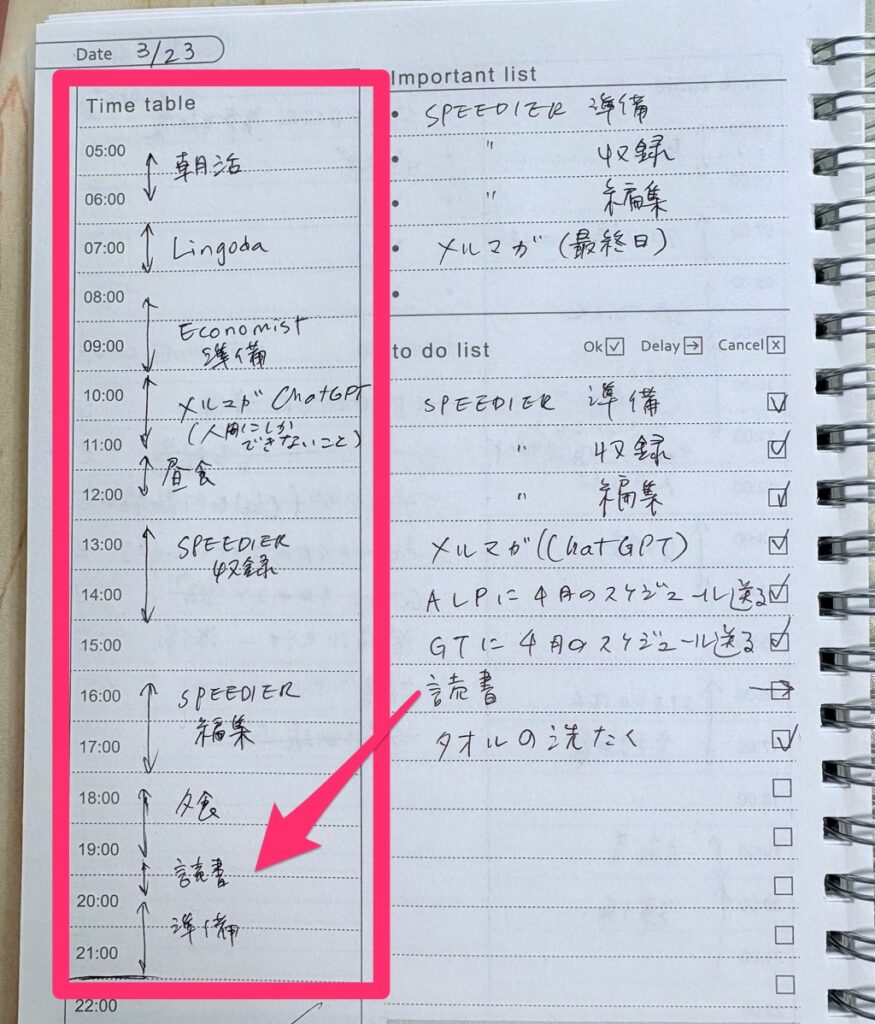 Date 3/23
Time table
05:00
朝活
06:00
07:00 Lingoda
08:00
Economist
09:00 準備
10:00 メルマガ ChatGPT
(人間にしか
11:00 できないこと)
昼食
12:00
13:00 SPEEDIER
収録
14:00
15:00
16:00 SPEEDIER
編集
17:00
18:00 夕食
19:00
読書
20:00
準備
21:00
22:00
Important list
• SPEEDIER 準備
• " 収録
• " 編集
• メルマガ (最終日)
•
to do list Ok ☑ Delay → Cancel ☒
SPEEDIER 準備 ☑
" 収録 ☑
" 編集 ☑
メルマガ(ChatGPT) ☑
ALPに4月のスケジュール送る ☑
GTに4月のスケジュール送る ☑
読書 →
タオルの洗たく ☑